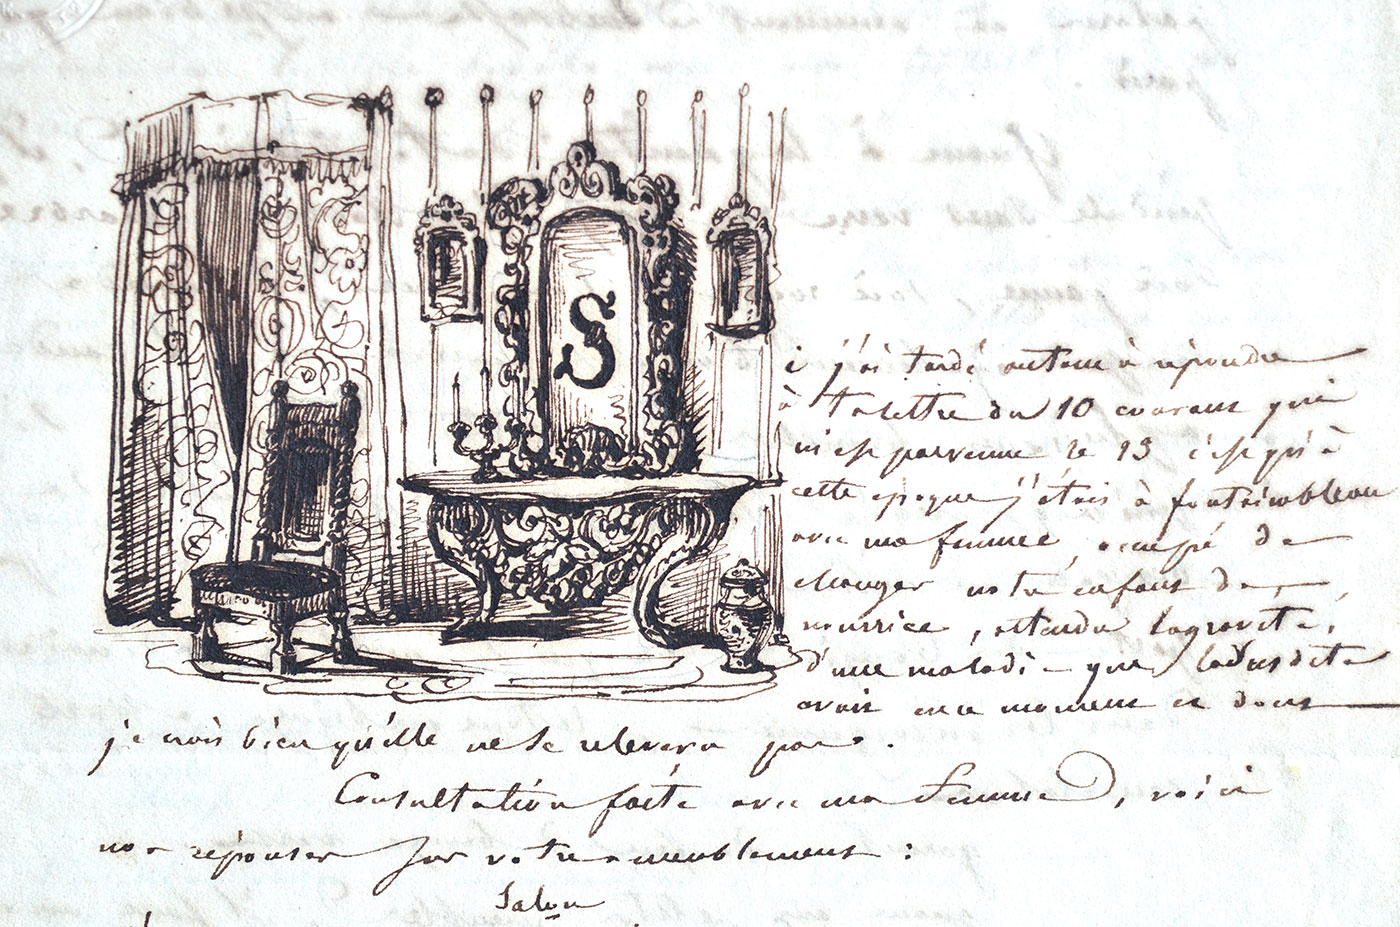 S
i j'ai tardé autant à répondre
à ta lettre du 10 courant qui
m'est parvenue le 13 c'est qu'à
cette époque j'étais à fontainebleau
avec ma femme, occupé de
changer notre enfant de
nourrice, attendu la gravité
d'une maladie que ladite
avait en ce moment et dont
je crois bien qu'elle ne se relevera pas.
Consultation faite avec ma femme, voici
nos réponses sur votre ameublement :
Salon